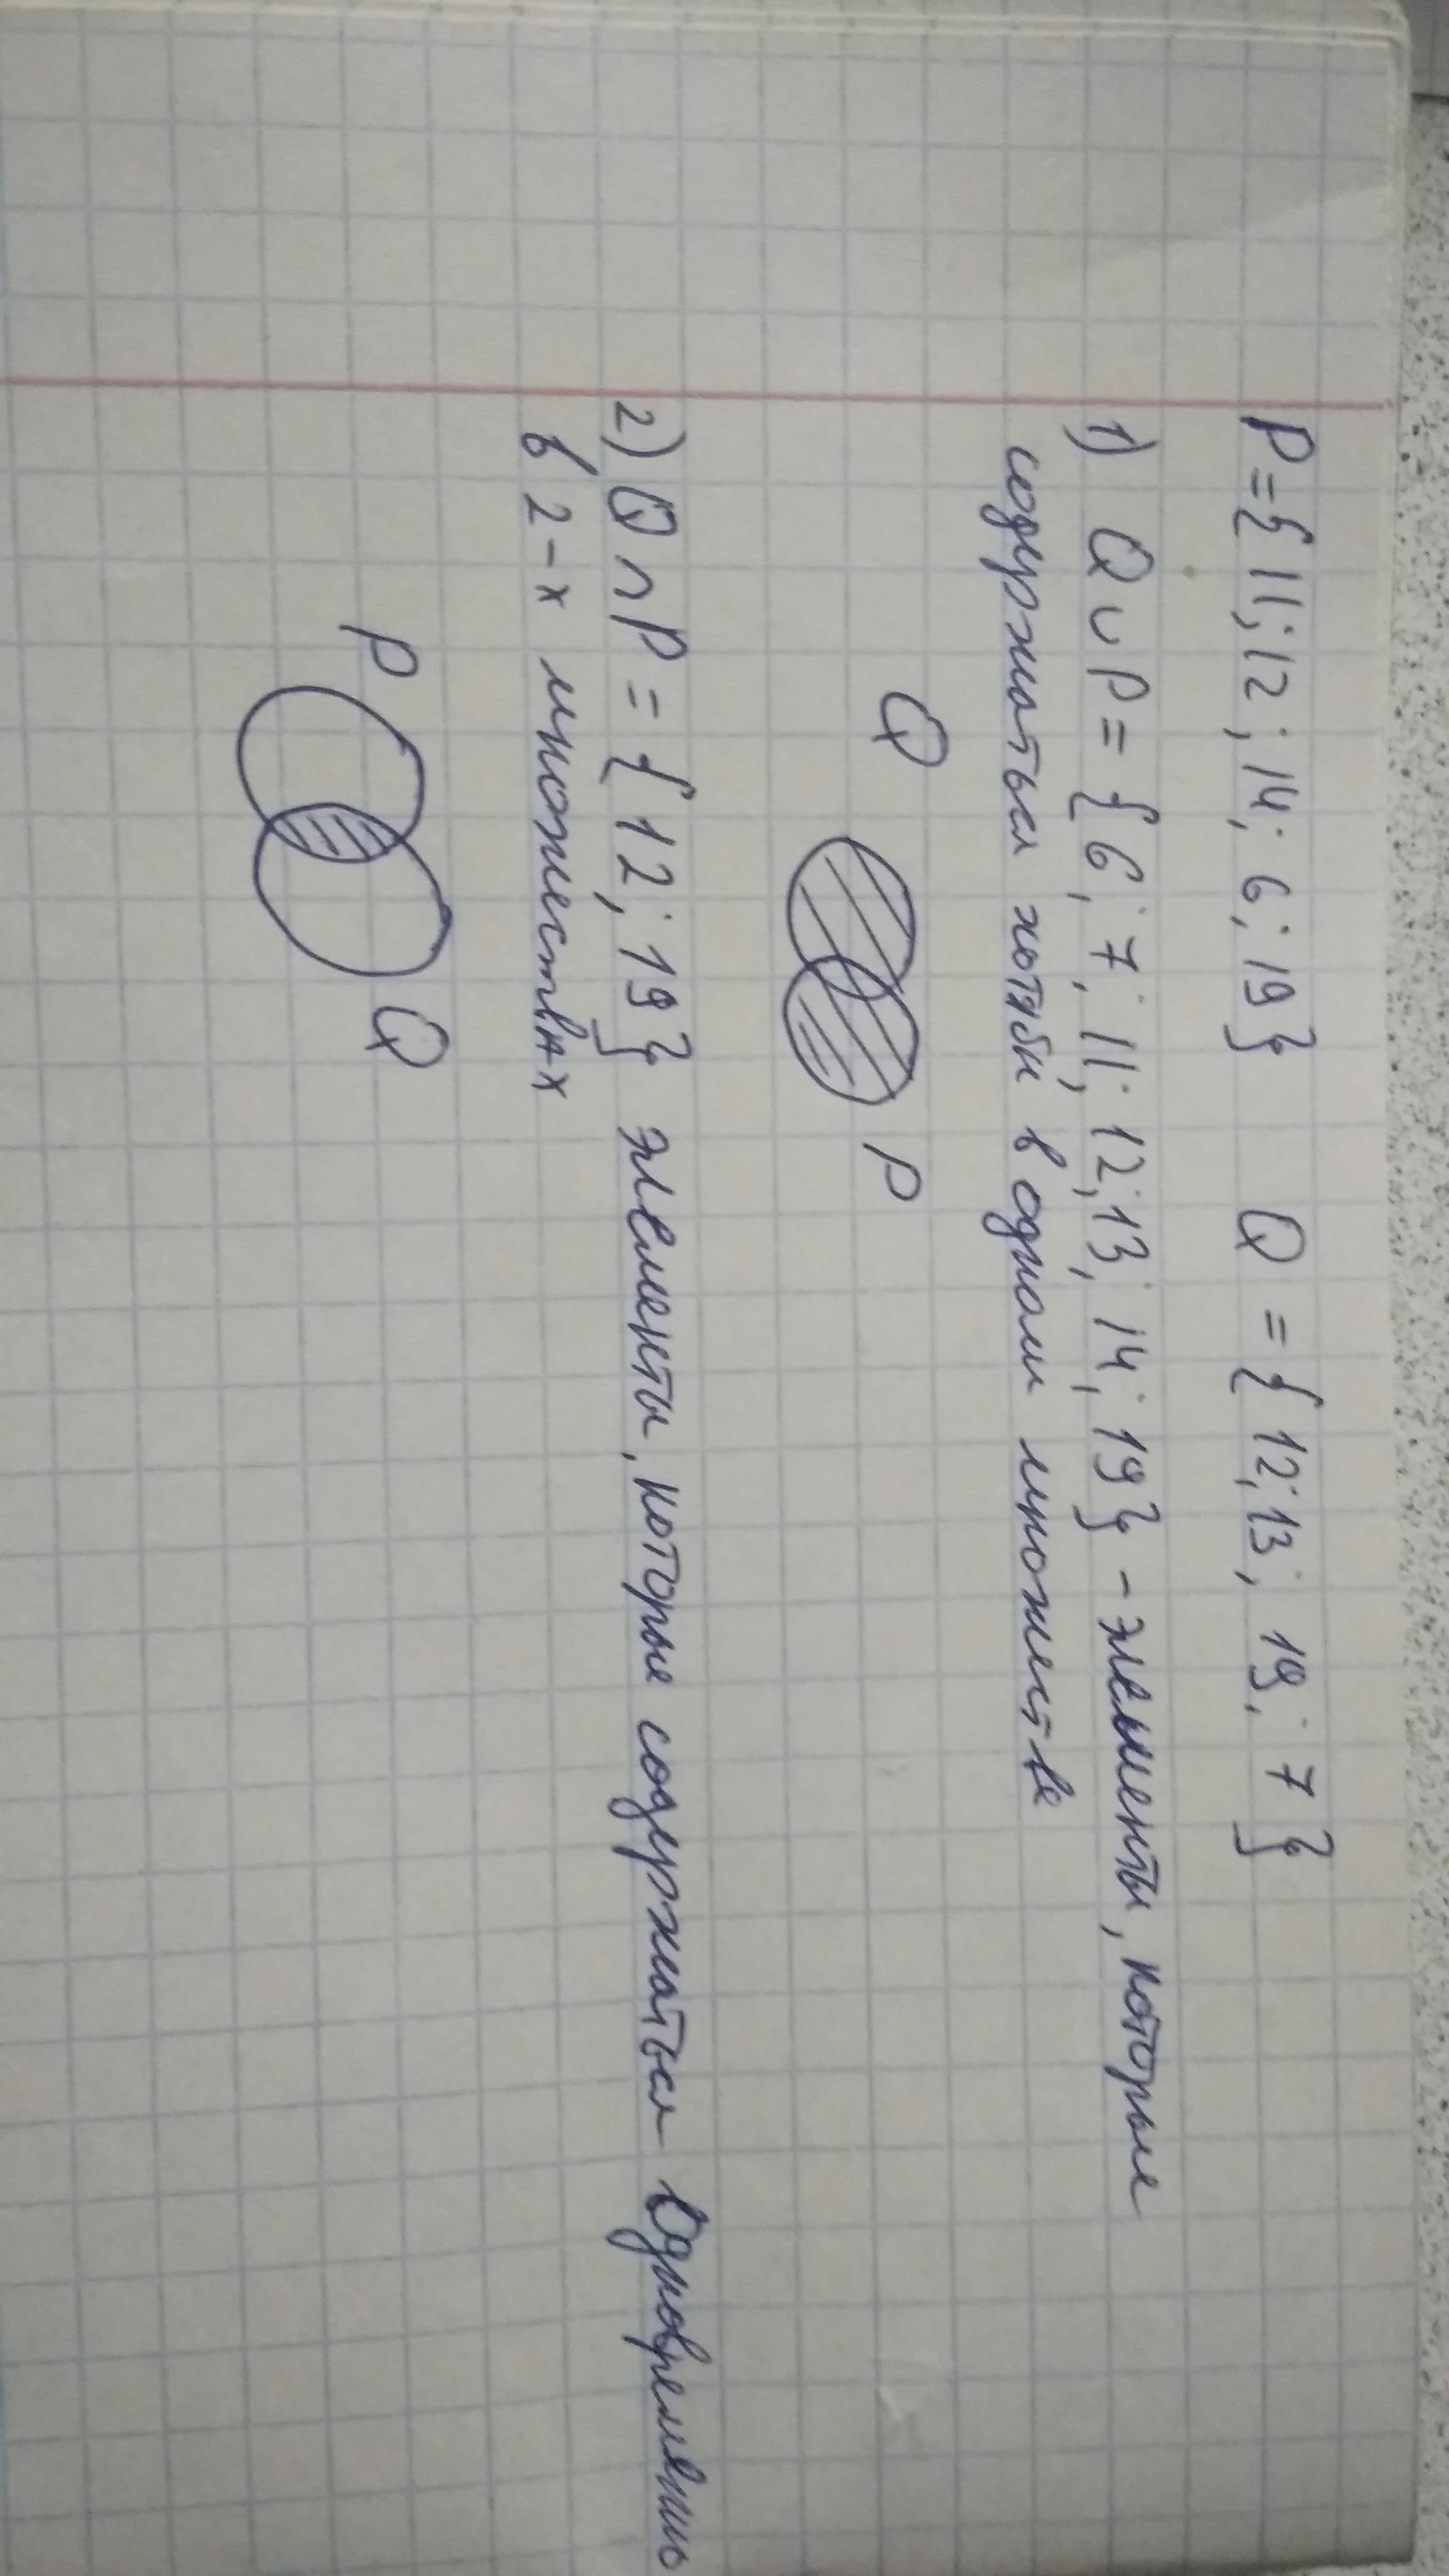 P={11; 12; 14; 6; 19} Q = {12; 13; 19; 7}
1) Q ∪ P = {6; 7; 11; 12; 13; 14; 19} - элементы, которые
содержаться хотябы в одном множестве
Q P
2) Q ∩ P = {12; 19} элементы, которые содержаться одновременно
в 2-х множествах
P Q